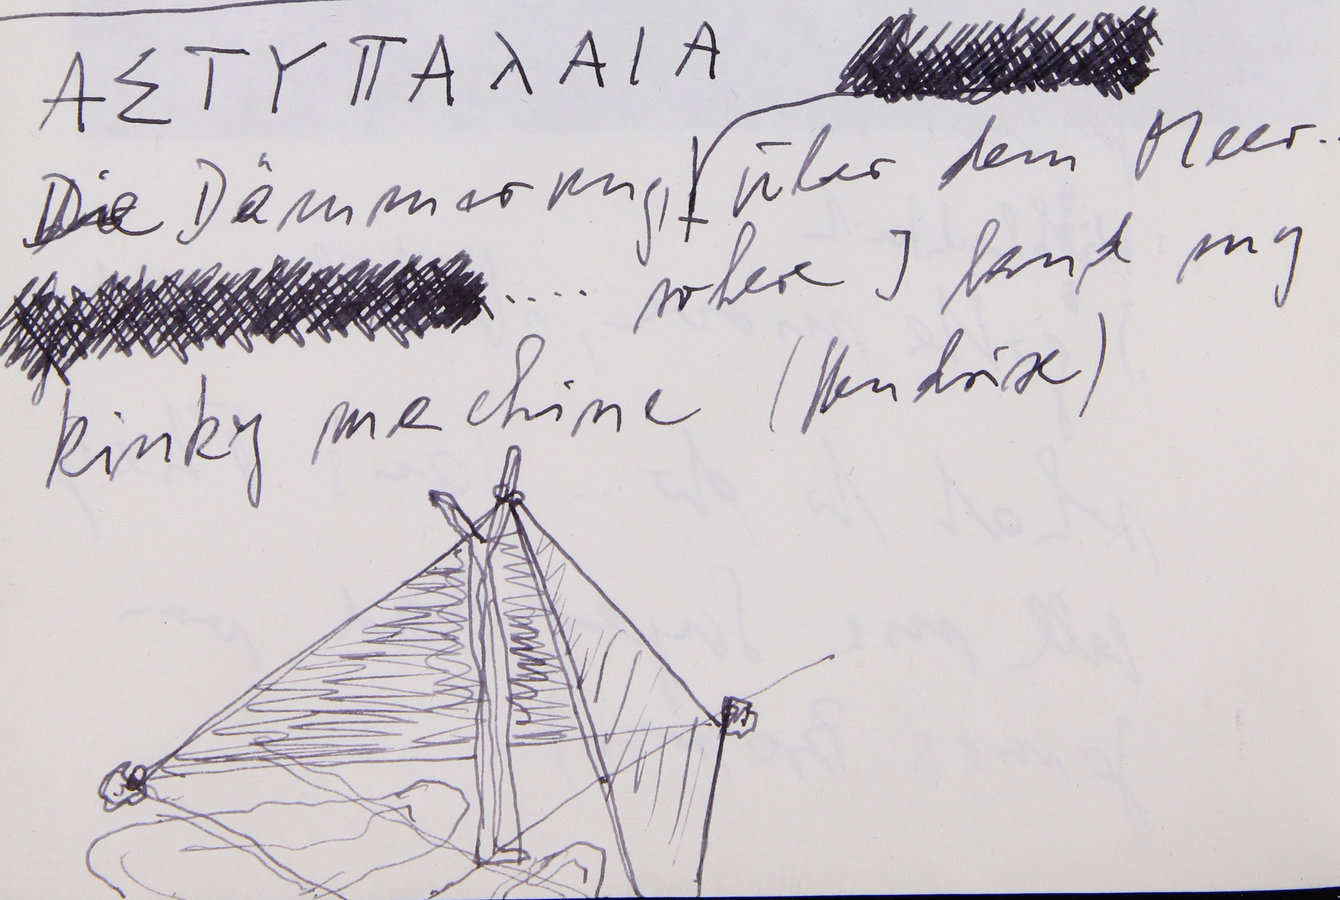 ΑΣΤΥΠΑλΑΙΑ
Die Dämmerung über dem Meer..
.... where I land my
kinky machine (Hendrix)